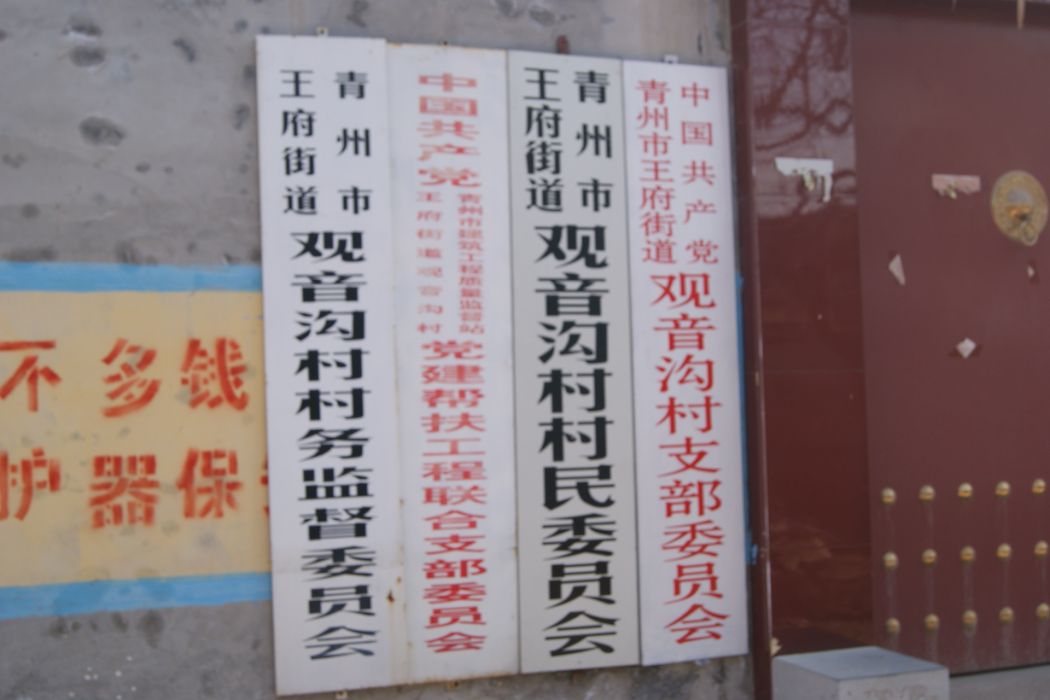 青州市
王府街道
观音沟村村务监督委员会
中国共产党
青州市建筑工程质量监督站
王府街道观音沟村
党建帮扶工程联合支部委员会
青州市
王府街道
观音沟村村民委员会
中国共产党
青州市王府街道
观音沟村支部委员会
不多钱
护器保